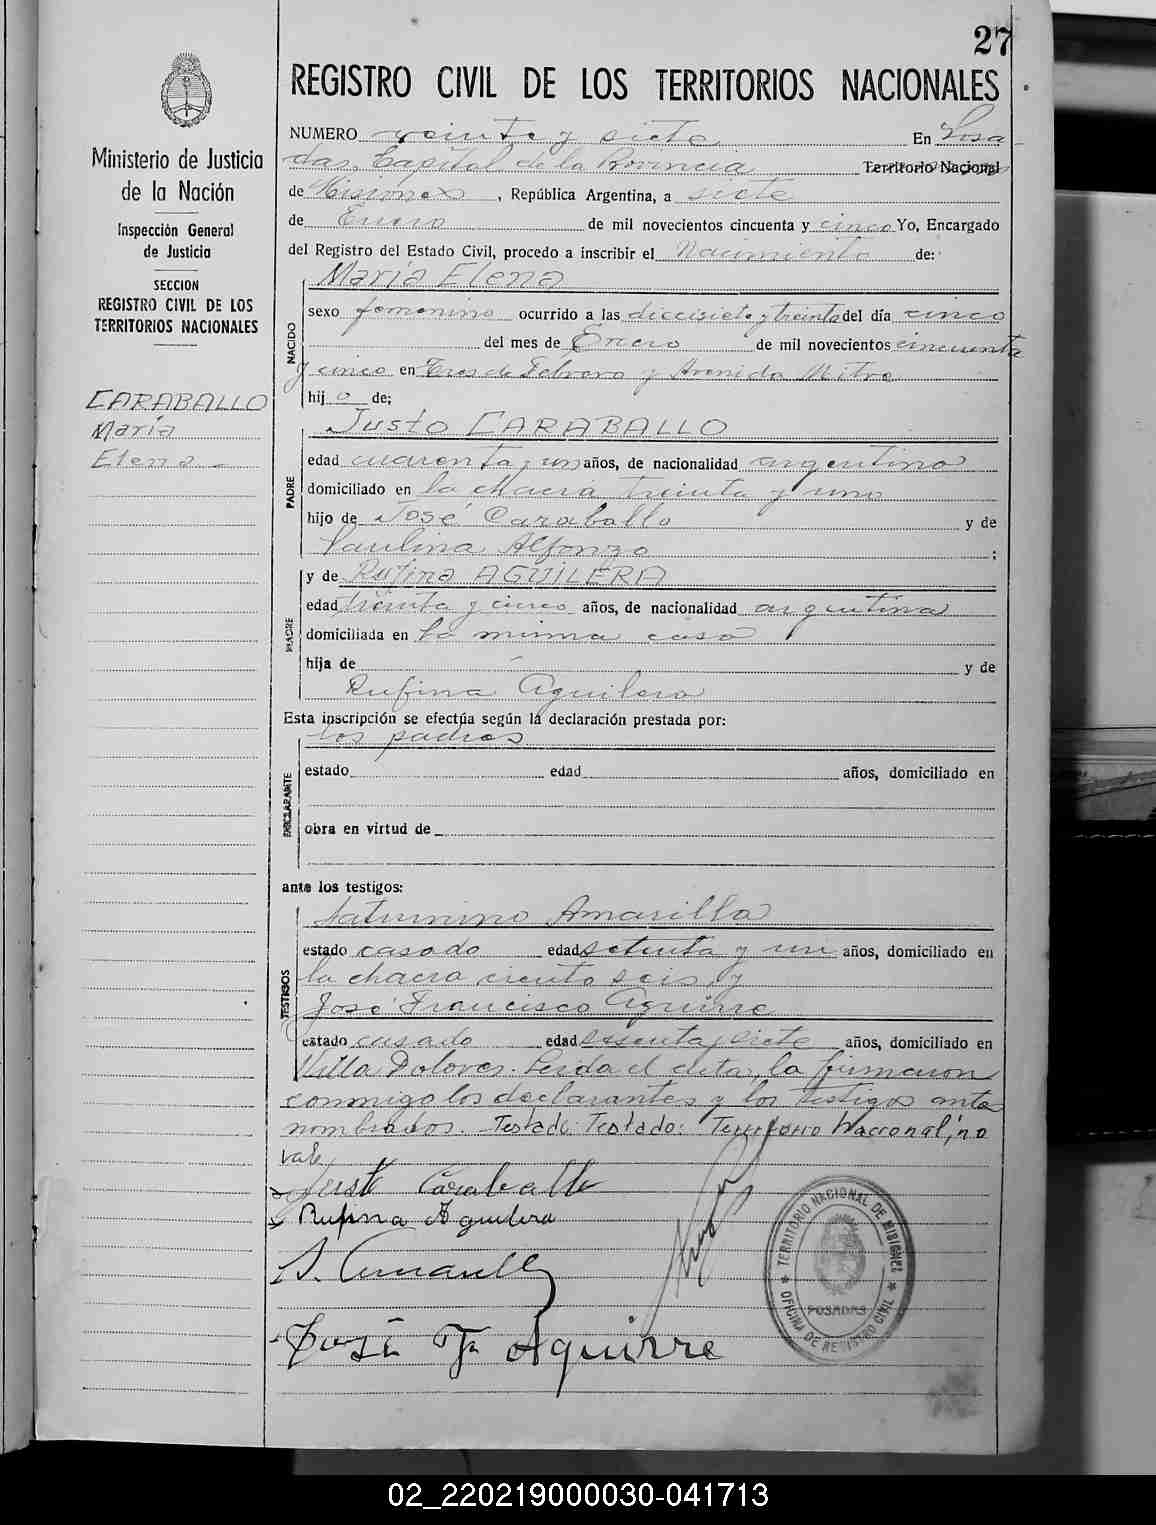 27
REGISTRO CIVIL DE LOS TERRITORIOS NACIONALES
Ministerio de Justicia
de la Nación
Inspección General
de Justicia
SECCION
REGISTRO CIVIL DE LOS
TERRITORIOS NACIONALES
CARABALLO
María
Elena
NUMERO veinte y siete En Posa
das, Capital de la Provincia Territorio Nacional
de Misiones, República Argentina, a siete
de Enero de mil novecientos cincuenta y cinco Yo, Encargado
del Registro del Estado Civil, procedo a inscribir el Nacimiento de:
María Elena
NACIDO
sexo femenino ocurrido a las diecisiete y treinta del día cinco
del mes de Enero de mil novecientos cincuenta
y cinco en Tres de Febrero y Avenida Mitre
hij a de:
Justo CARABALLO
PADRE
edad cuarenta y un años, de nacionalidad argentino
domiciliado en la chacra treinta y uno
hijo de José Caraballo y de
Paulina Alfonzo ;
y de Rufina AGUILERA
MADRE
edad treinta y cinco años, de nacionalidad argentina
domiciliada en la misma casa
hija de y de
Rufina Aguilera
Esta inscripción se efectúa según la declaración prestada por:
los padres
DECLARANTE
estado edad años, domiciliado en
obra en virtud de
ante los testigos:
Saturnino Amarilla
TESTIGOS
estado casado edad setenta y un años, domiciliado en
la chacra ciento seis, y
José Francisco Aguirre
estado casado edad sesenta y siete años, domiciliado en
Villa Dolores. Leida el acta, la firmaron
conmigo los declarantes y los testigos ante
nombrados. Testado: Testado: Territorio Nacional, no
vale
Justo Caraballo
Rufina Aguilera
S. Amarilla
José F. Aguirre
TERRITORIO NACIONAL DE MISIONES
POSADAS
OFICINA DE REGISTRO CIVIL
02_220219000030-041713